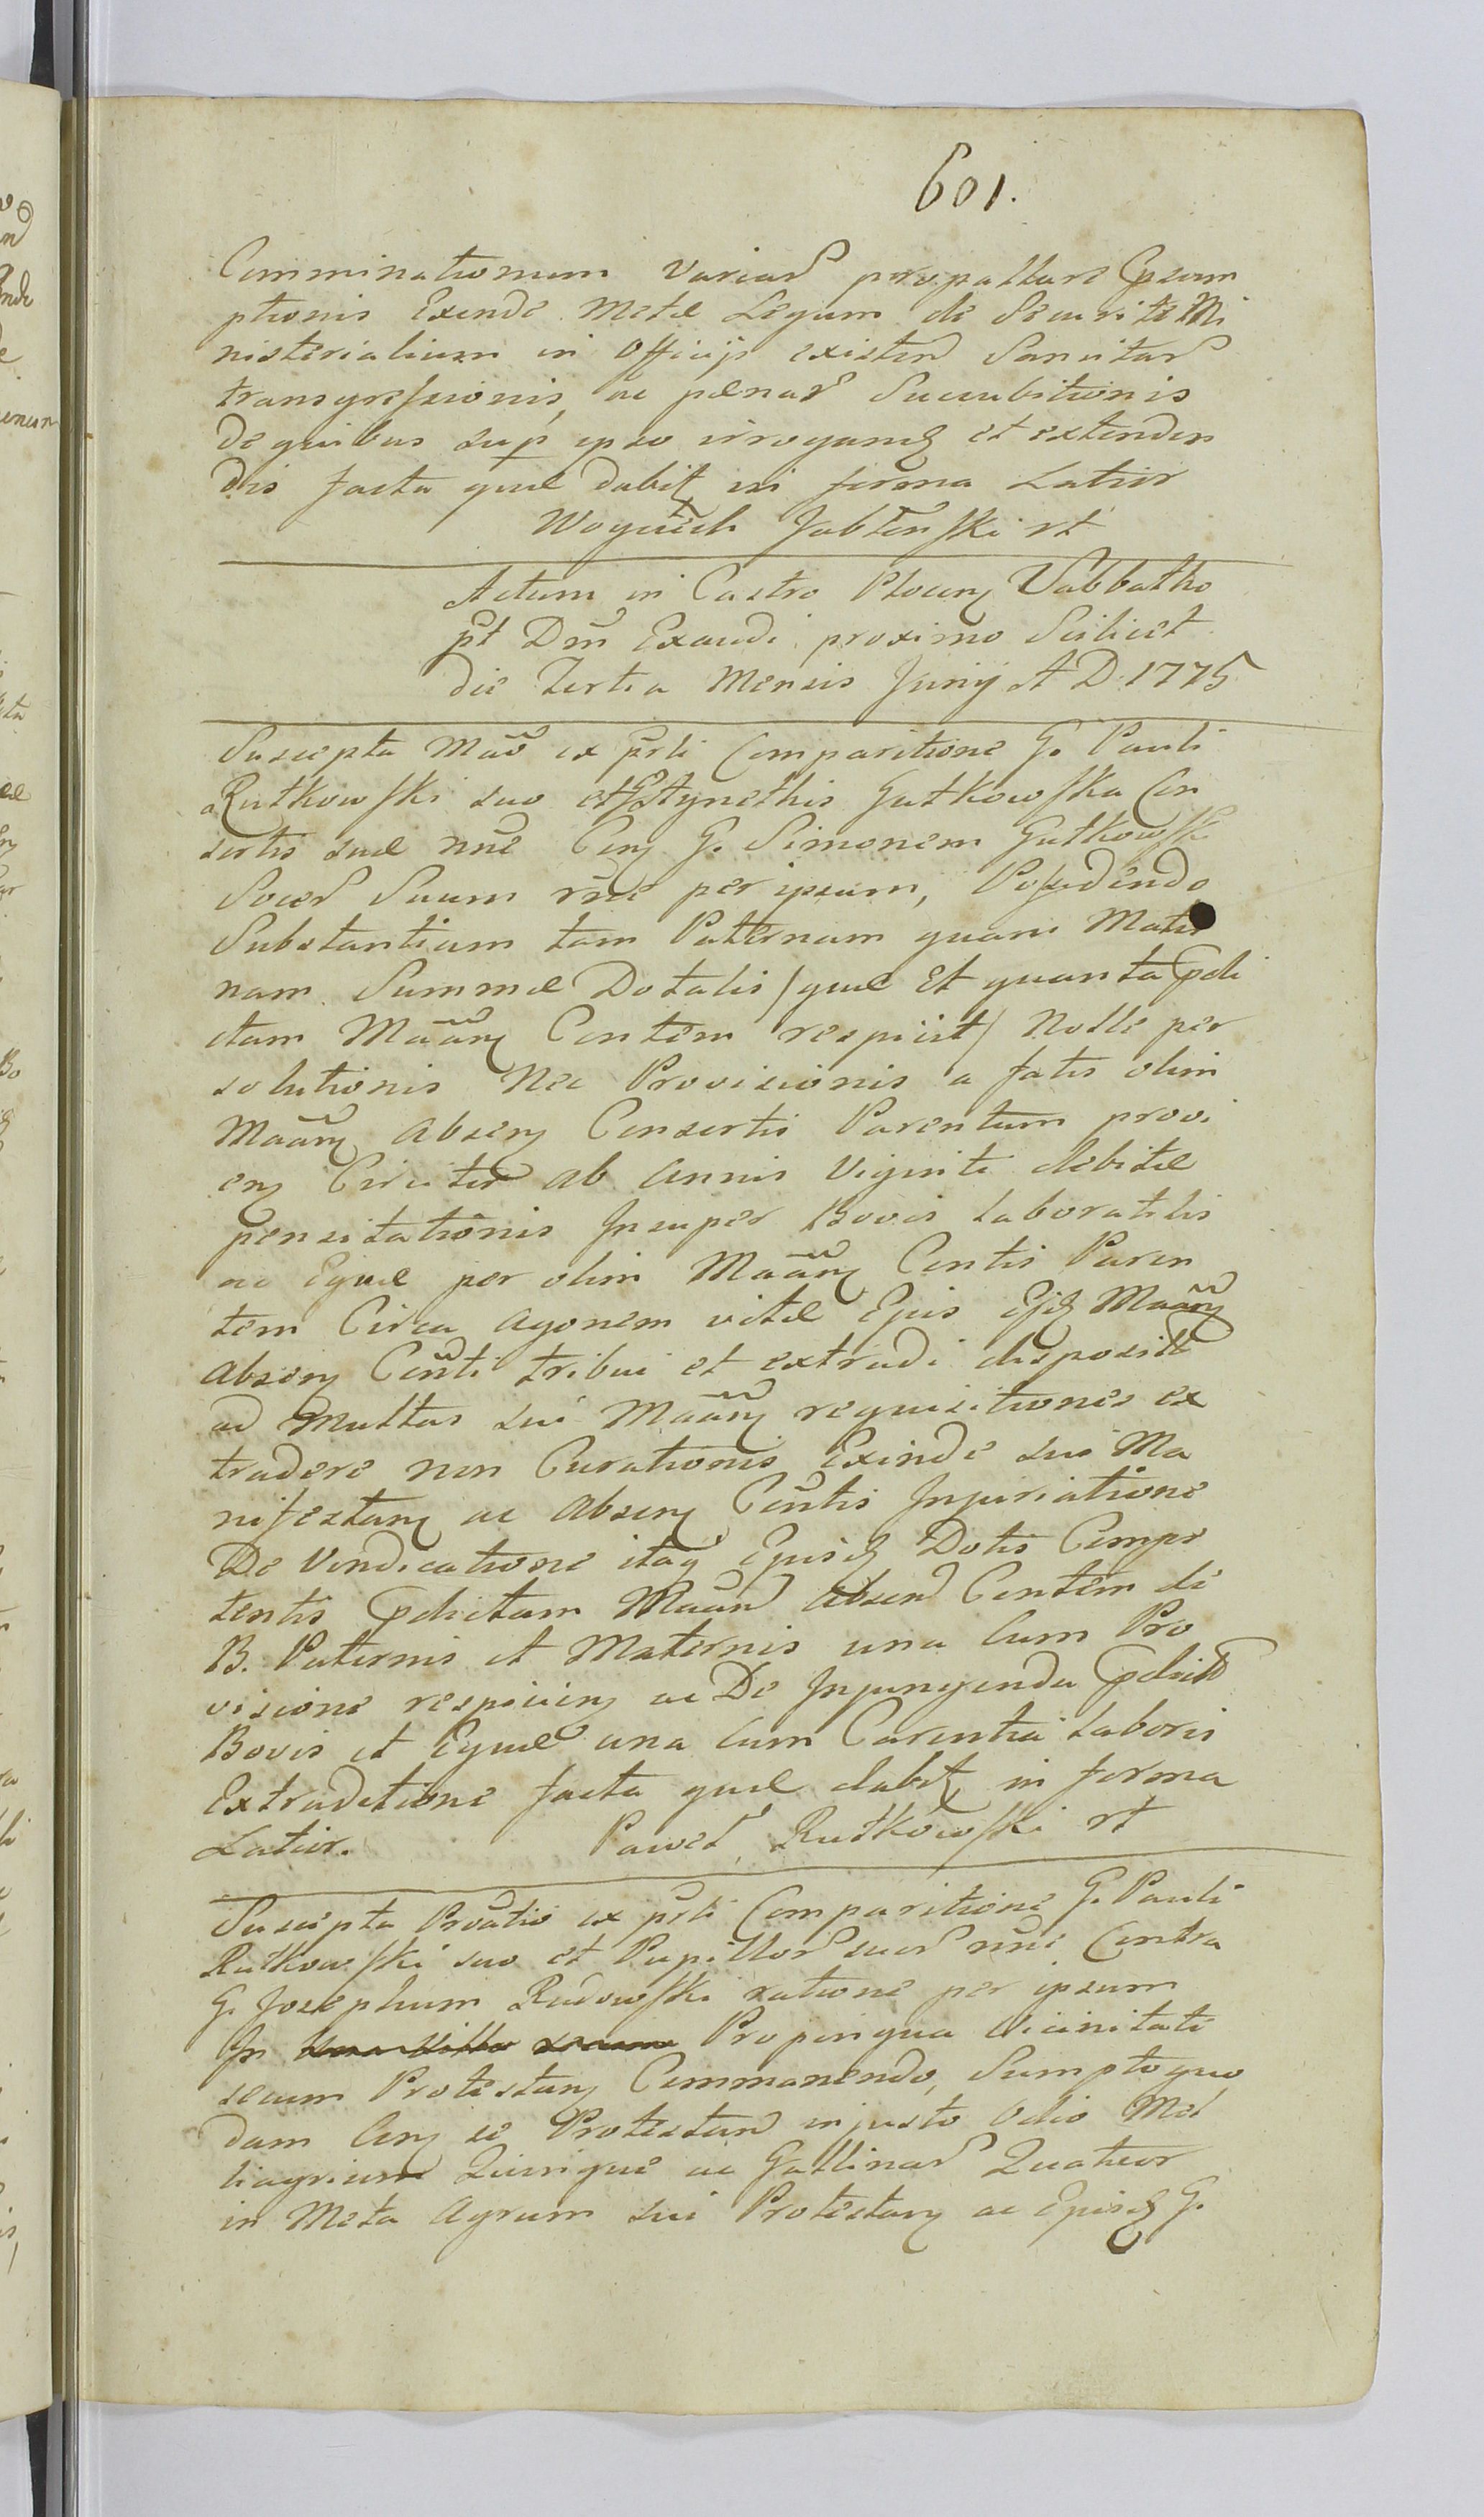 601.
Comminationum variaȓ propallare Ipsum
ptionis Exinde Metæ Legum de Securite Mi
nisterialium in Officijs existen Sancitaȓ
transgressionis, ac pænaȓ Succubitionis
De quibus sup ipso irrogang et extenden
dis facta quæ dabit in forma Latior
Woyciech Jabłonski rt
Actum in Castro Plocen Sabbatho
pt Dm̃ Exaudi proximo Scilicet
die Tertia Mensis Junij A D 1775
Suscepta Mão ex p̃rli Comparitione G. Pauli
Rutkowski suo et G Agnethis Gutkowska Con
sortis suæ nñe Con G. Simonem Gutkowsk
Soceȓ Suum rñe per ipsum, Possidendo
Substantiam tam Paternam quam Mater
nam Summæ Dotalis / quæ Et quanta
ctam Mãan Contem respicit / Nolle per
solutionis Nec Provisionis a fatis olim
Mãan Absen Consortis Parentum provi
en Circiter ab Annis Viginti debitæ
pensitationis Insuper Bovis laboratilis
ac Equæ per olim Mãan Contis Paren
tem Circa Agonem vitæ Ejus Ejd Mãan
Absen Conti tribui et extradi disposit
ad Multas sui Mãan requisitiones ex
tradere non Curationis Exinde sui Ma
nifestan ac Absen Contis Injuriatione
De Vindicatione itaq Ejusd Dotis Compe
tentis Pdictam Mãan Absen Contem de
B. Paternis et Maternis una Cum Pro
visione respicien ac De Injungenda Pdict
Bovis et Equæ una Cum Carentia laboris
Extraditione facta quæ dabit in forma
Latior. Paweł Rutkowski rt
Suscepta Prõatio ex p̃rli Comparitione G. Pauli
Rutkowski suo et Pupilloȓ suoȓ nñe Contra
G. Josephum Rudowski ratione per ipsum
In Propinqua Vicinitati
secum Protestan Commanendo, Sumpto quo
dam Con se Protestan injusto Odio Mel
liagrium Quinque ac Gallinaȓ Quatuor
in Meta Agrum sui Protestan ac Ejusd G.